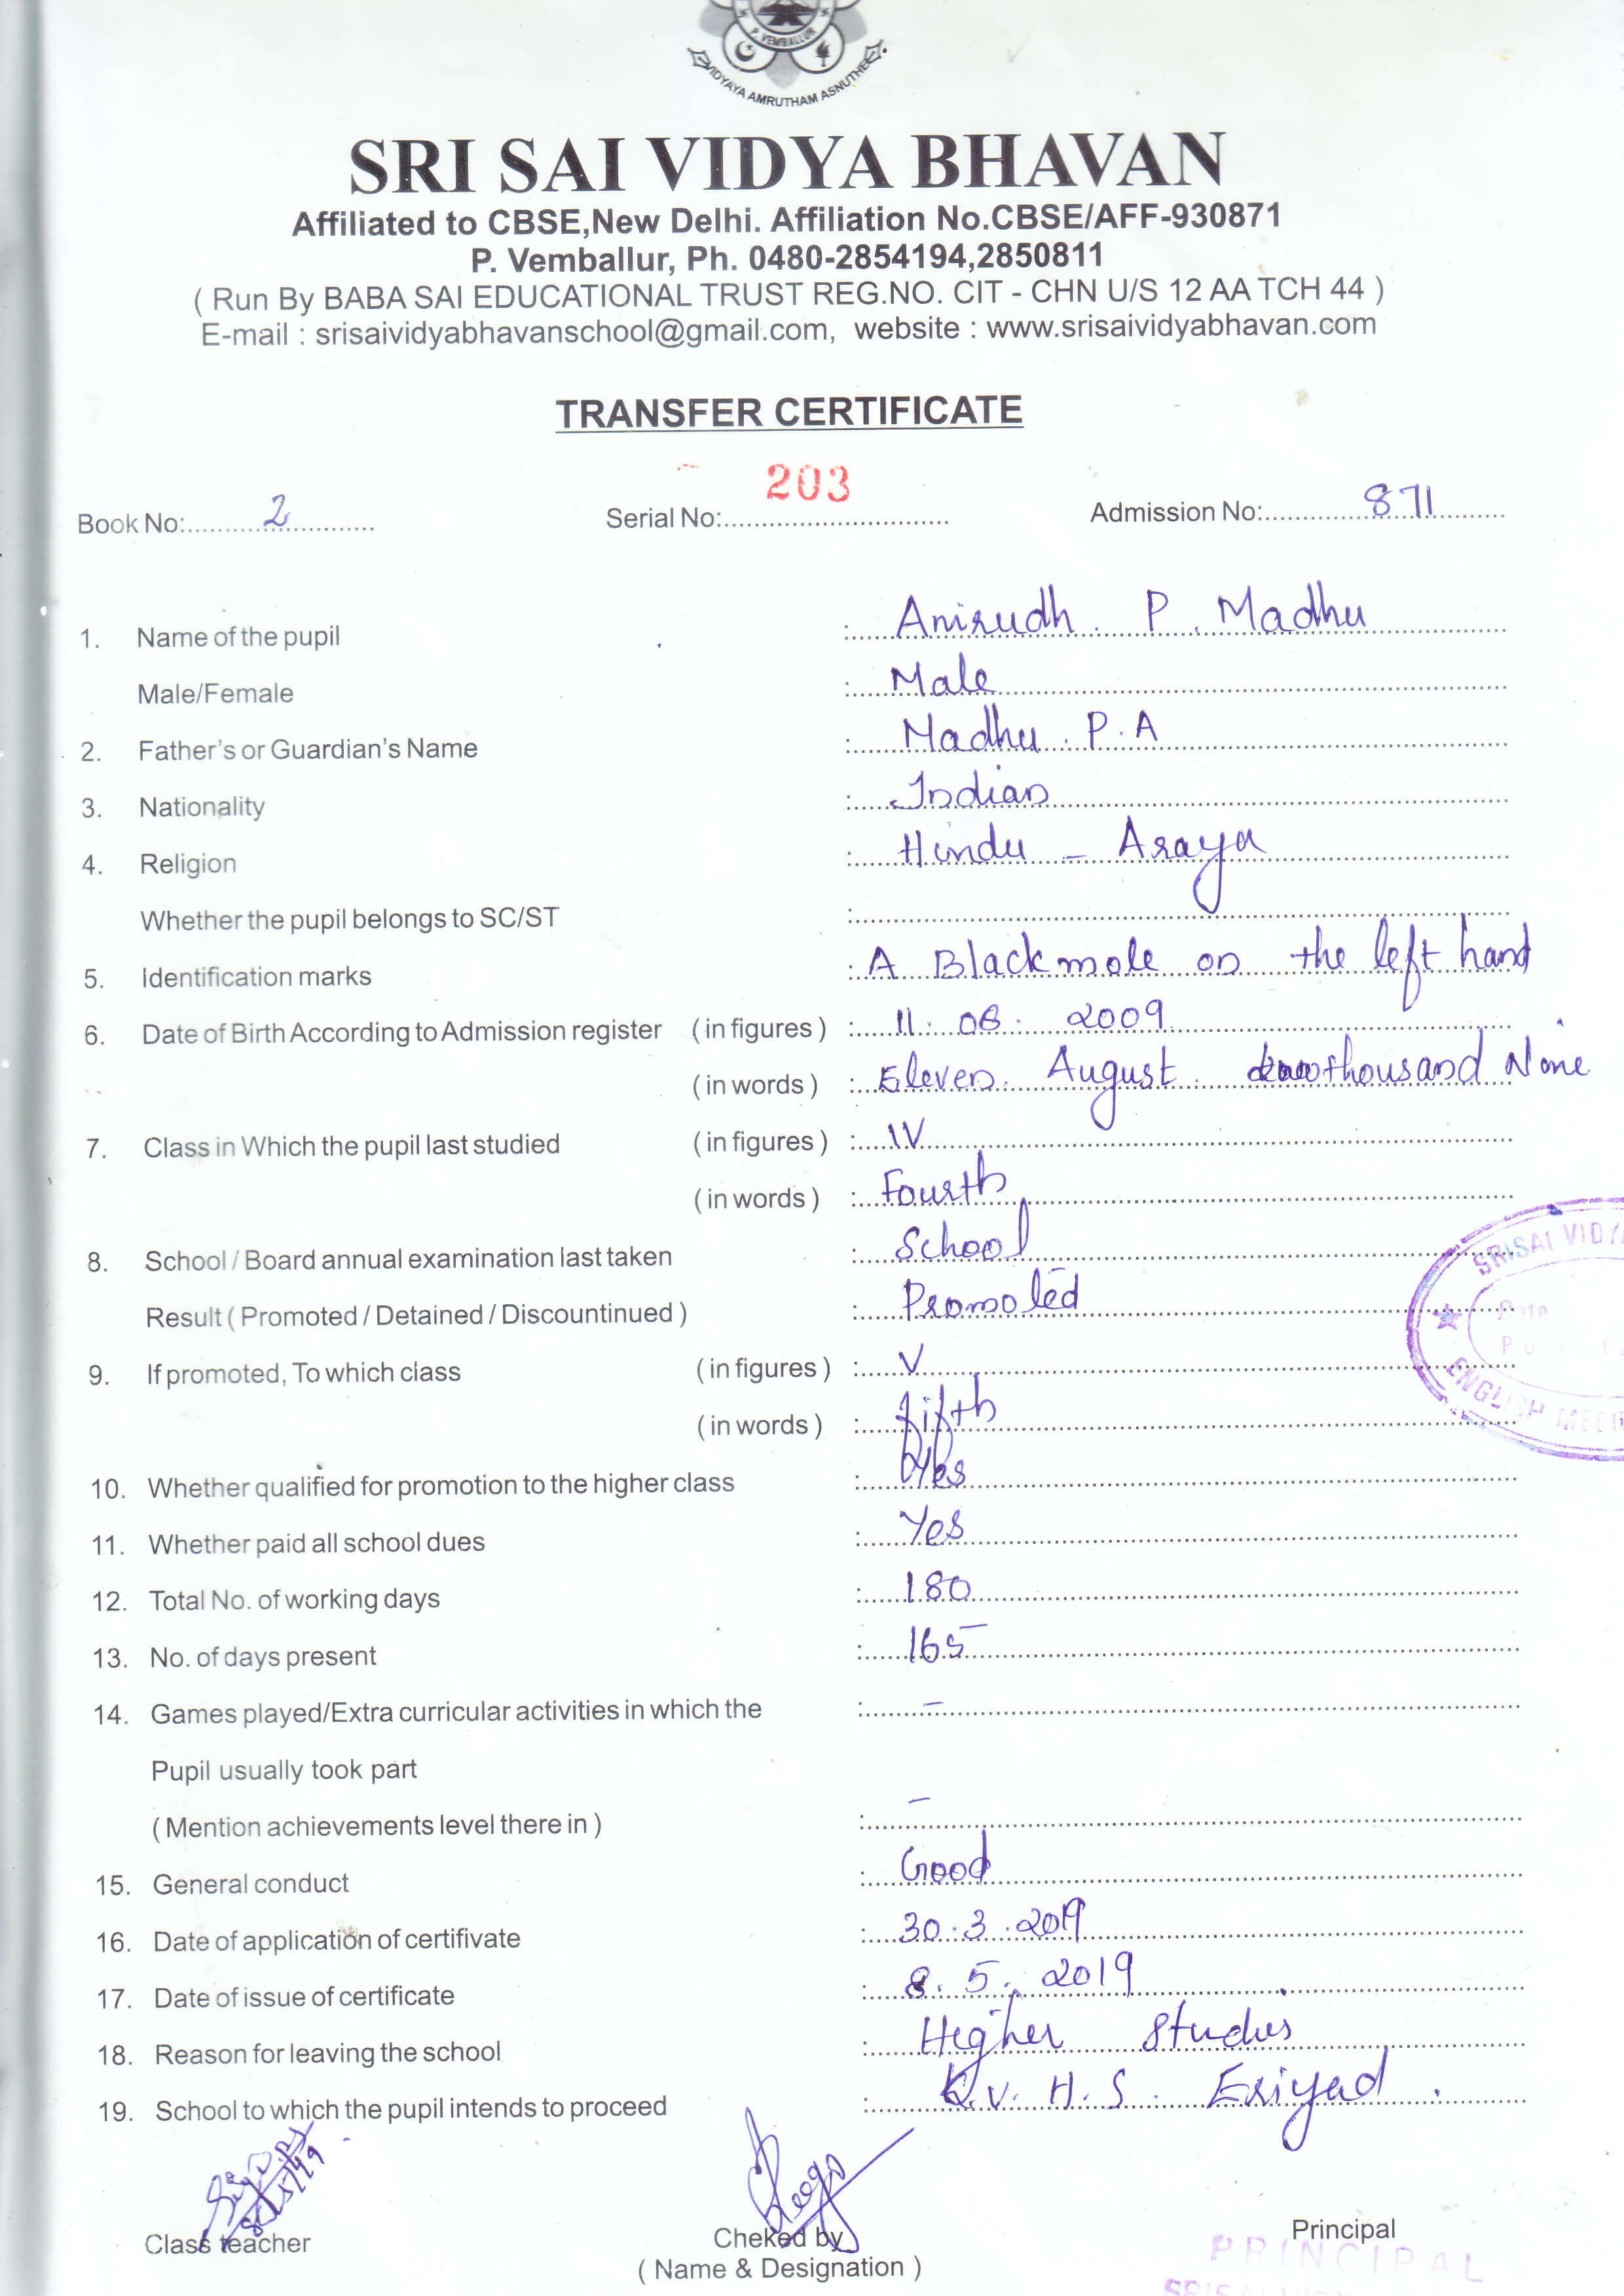 P. VEMBALLUR
VIDYAYA AMRUTHAM ASNUTHE
SRI SAI VIDYA BHAVAN
Affiliated to CBSE,New Delhi. Affiliation No.CBSE/AFF-930871
P. Vemballur, Ph. 0480-2854194,2850811
( Run By BABA SAI EDUCATIONAL TRUST REG.NO. CIT - CHN U/S 12 AA TCH 44 )
E-mail : srisaividyabhavanschool@gmail.com, website : www.srisaividyabhavan.com
TRANSFER CERTIFICATE
Book No: 2 Serial No: 203 Admission No: 871
1. Name of the pupil : Anirudh . P . Madhu
Male/Female : Male
2. Father's or Guardian's Name : Madhu . P . A
3. Nationality : Indian
4. Religion : Hindu - Araya
Whether the pupil belongs to SC/ST :
5. Identification marks : A Black mole on the left hand
6. Date of Birth According to Admission register ( in figures ) : 11. 08. 2009
( in words ) : Eleven August thousand Nine
7. Class in Which the pupil last studied ( in figures ) : IV
( in words ) : Fourth
8. School / Board annual examination last taken : School
Result ( Promoted / Detained / Discountinued ) : Promoted
9. If promoted, To which class ( in figures ) : V
( in words ) : fifth
10. Whether qualified for promotion to the higher class : Yes
11. Whether paid all school dues : Yes
12. Total No. of working days : 180
13. No. of days present : 165
14. Games played/Extra curricular activities in which the : -
Pupil usually took part
( Mention achievements level there in ) : -
15. General conduct : Good
16. Date of application of certifivate : 30.3.2019
17. Date of issue of certificate : 8. 5. 2019
18. Reason for leaving the school : Higher Studies
19. School to which the pupil intends to proceed : K.V. H. S. Eriyad .
SRISAI VIDYA
ENGLISH MEDI
Class teacher Cheked by Principal
( Name & Designation )
PRINCIPAL